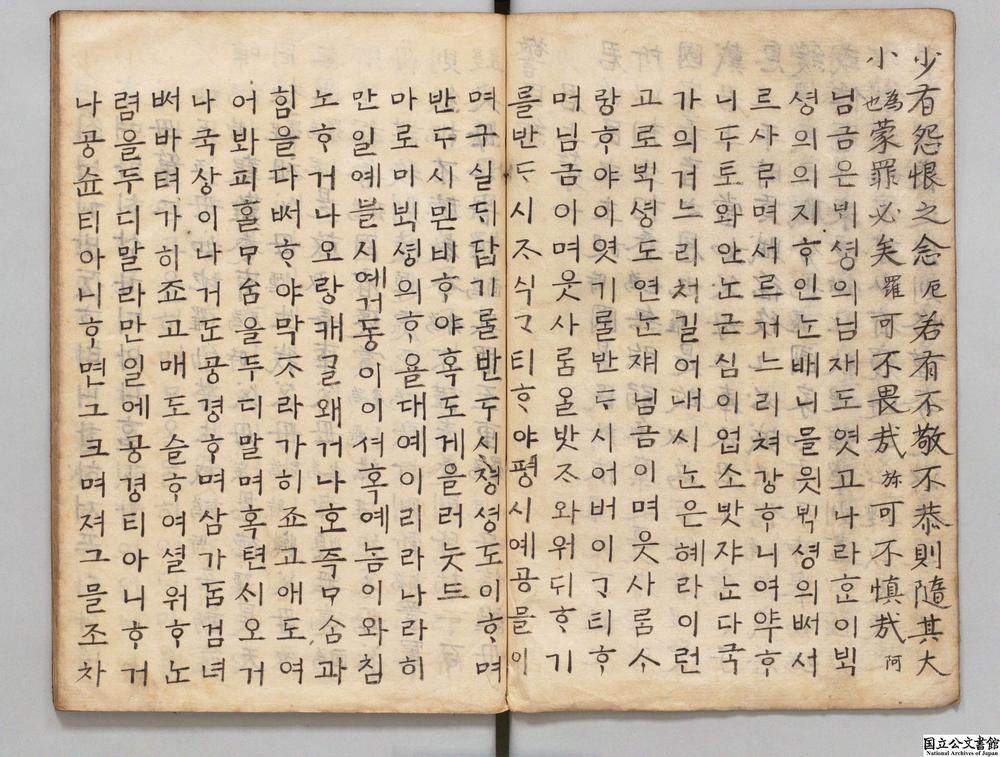 少有怨恨之念厄若有不敬不恭則隨其大
小為也蒙罪必矣羅可不畏哉㫆可不慎哉阿
님금은ᄇᆡᆨ셩의님재도엿고나라ᄒᆞᆫ이ᄇᆡᆨ
셩의의지ᄒᆞ인ᄂᆞᆫ배니믈읫ᄇᆡᆨ셩의써서
르사ᄅᆞ며서르거ᄂᆞ리쳐강ᄒᆞ니여약ᄒᆞ
니ᄃᆞ토와안ᄂᆞᆫ근심이업소밧쟈ᄂᆞᆫ다국
가의거ᄂᆞ리처길어내시ᄂᆞᆫ은혜라이런
고로ᄇᆡᆨ셩도연ᄂᆞᆫ재님금이며웃사ᄅᆞᆷᄉᆞ
랑ᄒᆞ야이엿기ᄅᆞᆯ반ᄃᆞ시어버이ᄀᆞ티ᄒᆞ
며님금아며웃사ᄅᆞᆷ올밧ᄌᆞ와위ᄃᆡᄒᆞ기
를반ᄃᆞ시ᄌᆞ식ᄀᆞ티ᄒᆞ야평시예공믈이
며구실ᄃᆡ답기ᄅᆞᆯ반ᄃᆞ시졍셩도이ᄒᆞ며
반ᄃᆞ시민비ᄒᆞ야혹도게을러늣드
마로미ᄇᆡᆨ셩의ᄒᆞ욜대예이리라나라히
만일예블시예거동이이셔혹예놈이와침
노ᄒᆞ거나오랑캐글왜거나ᄒᆞ즉ᄆᆞᄉᆞᆷ과
힘을다써ᄒᆞ야막ᄌᆞ라가히죠고애도여
어봐피홀ᄆᆞᄉᆞᆷ을두디말며혹텬시오거
나국상이나거도공경ᄒᆞ며삼가ᄃᆞᆷ검녀
써바텨가히죠고매도슬ᄒᆞ여셜워ᄒᆞ노
렴을두디말라만일에공경티아니ᄒᆞ거
나공슌티아니ᄒᆞ면그크며져그믈조차
国立公文書館
National Archives of Japan